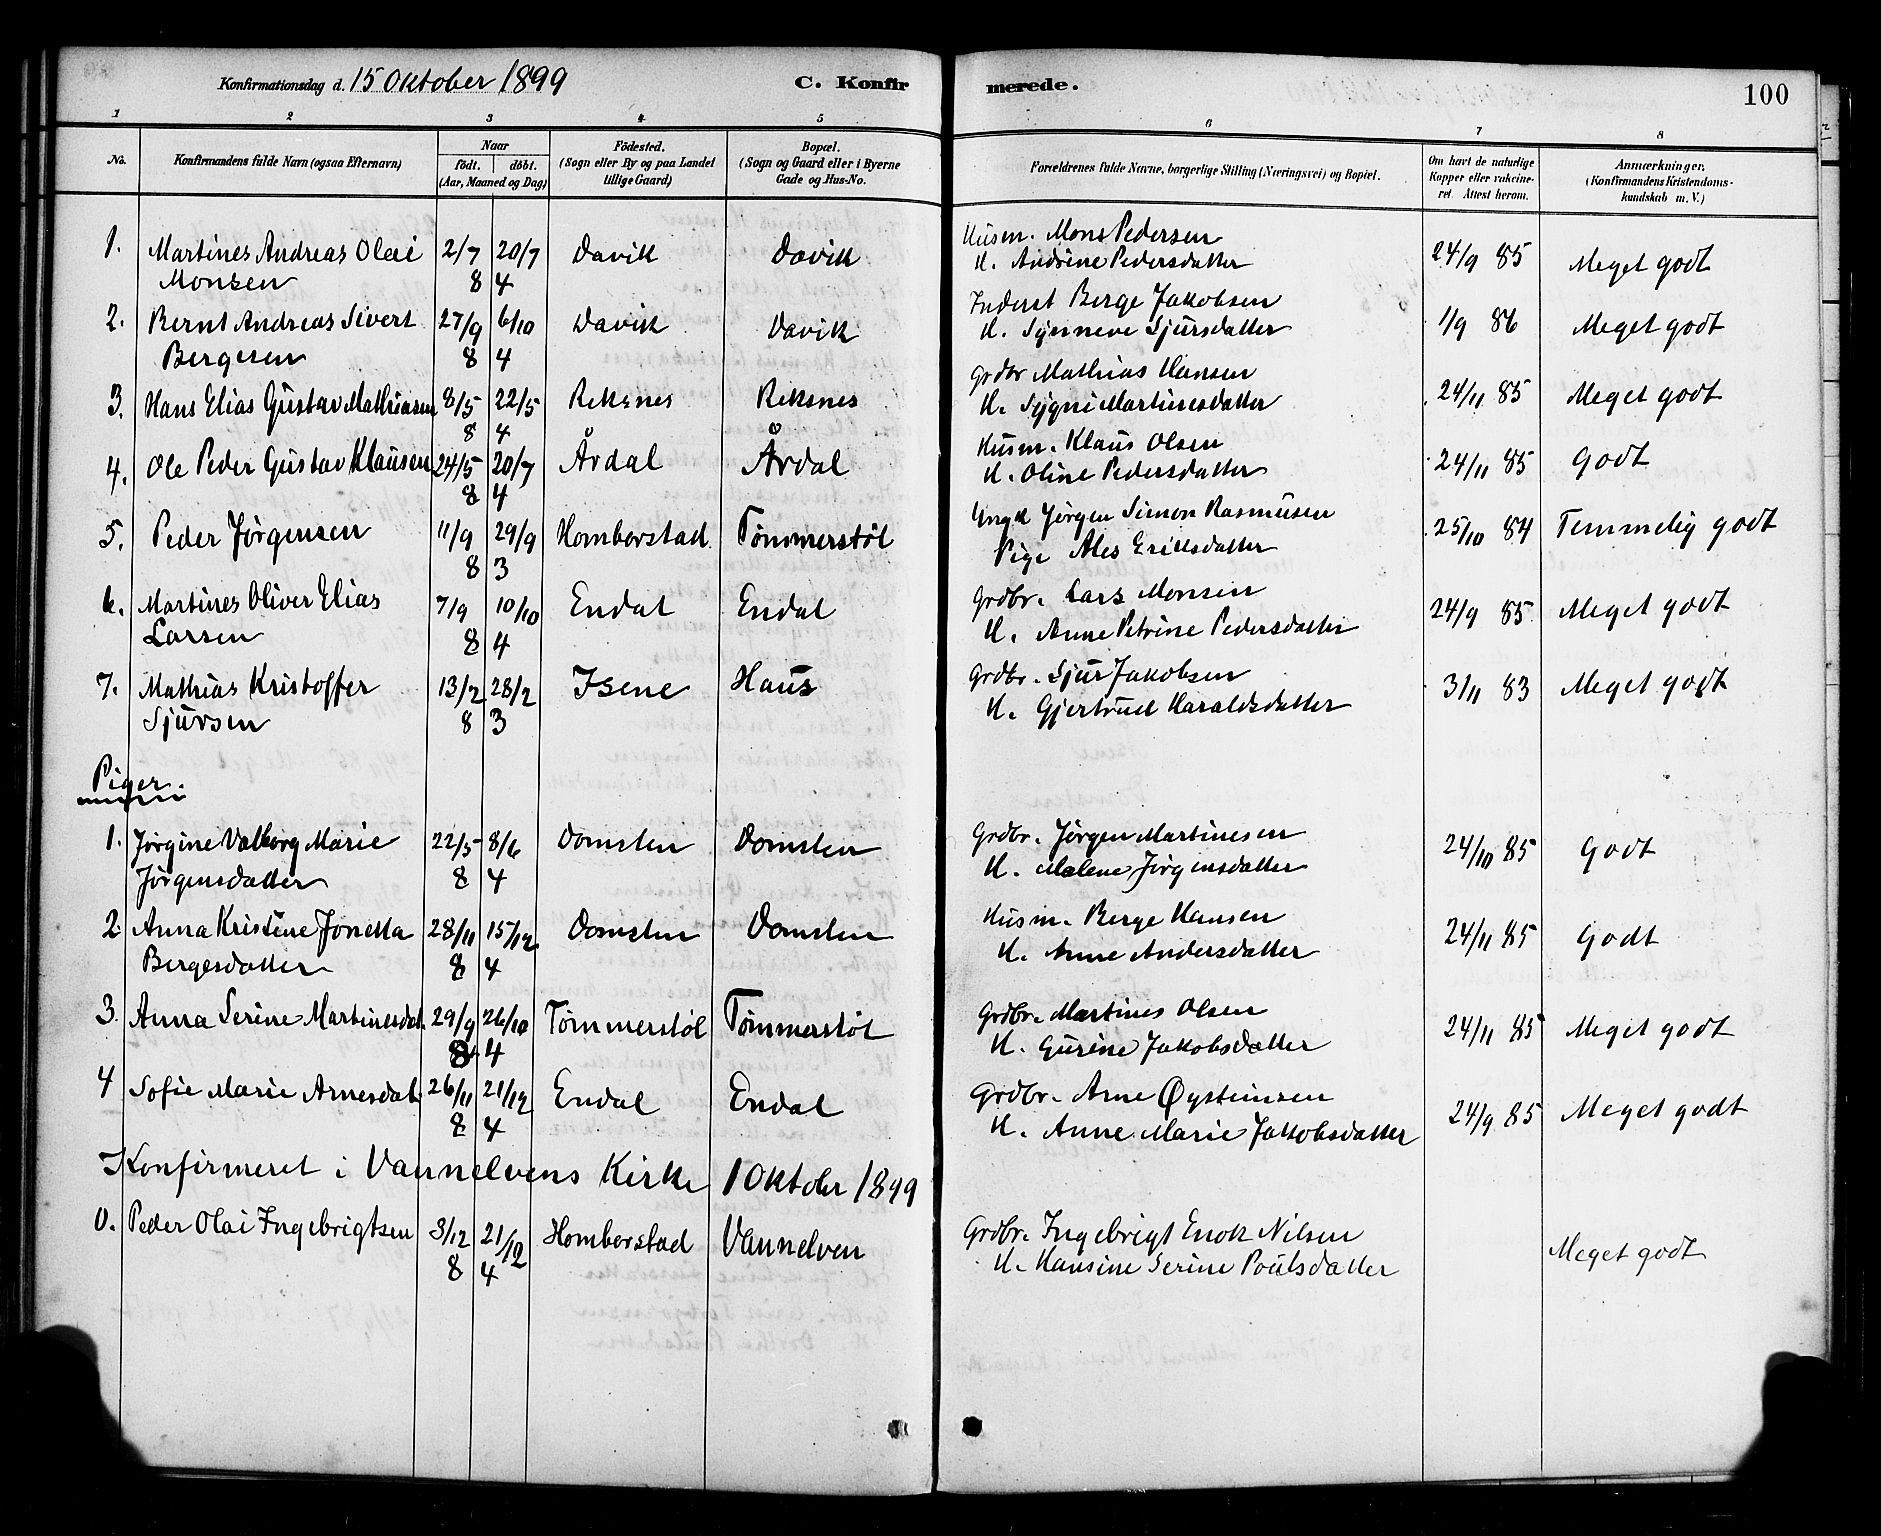 Konfirmationsdag d. 15 Oktober 1899 C. Konfirmerede. 100
1 2 3 4 5 6 7 8
No. Konfirmandens fulde Navn (ogsaa Efternavn) Naar født. døbt. (Aar, Maaned og Dag) Fødested. (Sogn eller By og paa Landet tillige Gaard) Bopæl. (Sogn og Gaard eller i Byerne Gade og Hus-No. Forældrenes fulde Navne, borgerlige Stilling (Næringsvei) og Bopæl. Om havt de naturlige Kopper eller vakcineret. Attest herom. Anmærkninger. (Konfirmandens Kristendomskundskab m. V.)
1. Martines Andreas Olai 2/7 20/7 Davik Davik Husm. Mons Pedersen 24/9 85 Meget godt
Monsen 8 4 H. Andrine Pedersdatter
2. Bernt Andreas Sivert 27/9 6/10 Davik Davik Inderst Berge Jakobsen 1/9 86 Meget godt
Bergesen 8 4 H. Synneve Sjursdatter
3. Hans Elias Gustav Mathiasen 8/5 22/5 Reksnes Reksnes Grdbr Mathias Hansen 24/11 85 Meget godt
8 4 H. Sygni Martinesdatter
4. Ole Peder Gustav Klausen 24/5 20/7 Årdal Årdal Husm. Klaus Olsen 24/11 85 Godt
8 4 H. Oline Pedersdatter
5. Peder Jørgensen 11/9 29/9 Homborstad Tømmerstøl Ungk Jørgen Simon Rasmusen 25/10 84 Temmelig godt
8 3 Pige Ales Eriksdatter
6. Martines Oliver Elias 7/9 10/10 Endal Endal Grdbr. Lars Monsen 24/9 85 Meget godt
Larsen 8 4 H. Anne Petrine Pedersdatter
7. Mathias Kristoffer 13/2 28/2 Isene Haus Grdbr. Sjur Jakobsen 3/11 83 Meget godt
Sjursen 8 3 H. Gjertrud Haraldsdatter
Piger.
1. Jørgine Valborg Marie 22/5 8/6 Domsten Domsten Grdbr. Jørgen Martinesen 24/10 85 Godt
Jørgensdatter 8 4 H. Malene Jørgensdatter
2 Anna Kristine Jonetta 28/11 15/12 Domsten Domsten Husm. Berge Hansen 24/11 85 Godt
Bergesdatter 8 4 H. Anne Andersdatter
3. Anna Serine Martinesdat. 29/9 26/10 Tømmerstøl Tømmerstøl Grdbr. Martines Olsen 24/11 85 Meget godt
8 4 H. Gurine Jakobsdatter
4 Sofie Marie Arnesdat. 26/11 21/12 Endal Endal Grdbr. Arne Øysteinsen 24/9 85 Meget godt
8 4 H. Anne Marie Jakobsdatter
Konfirmeret i Vannelvens Kirke 1 Oktober 1899
0. Peder Olai Ingebrigtsen 3/12 21/12 Homborstad Vannelven Grdbr. Ingebrigt Enok Nilsen Meget godt
8 4 H. Hansine Serine Poulsdatter